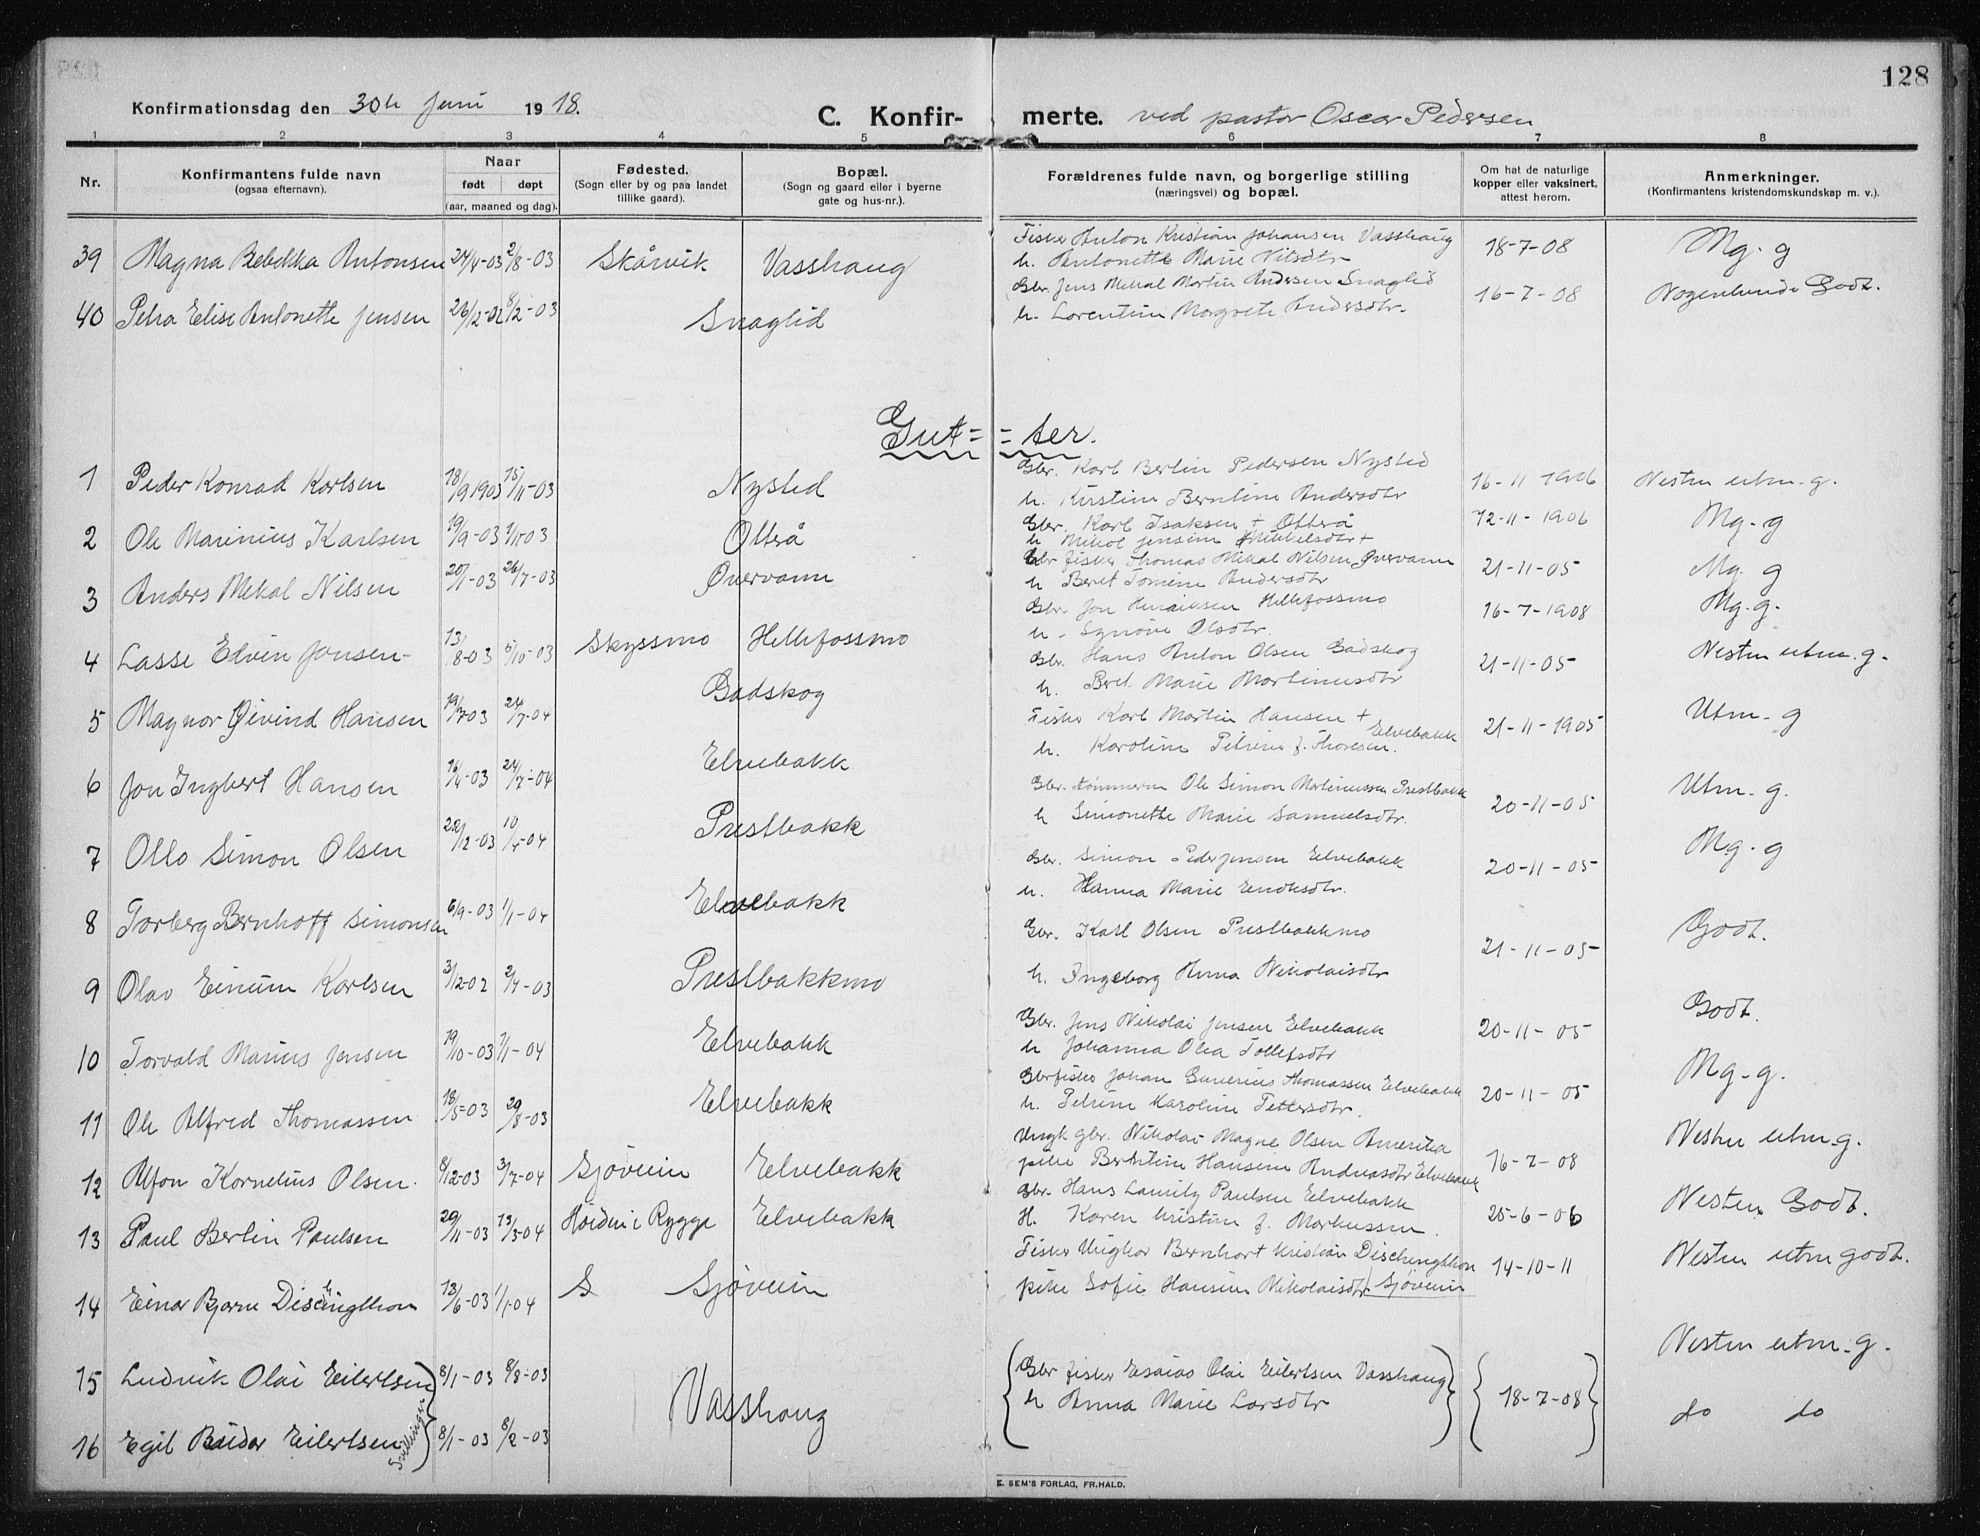 128
Konfirmationsdag den 30te Juni 1918.
C. Konfir- merte. ved pastor Oscar Pedersen
1 2 3 4 5 6 7 8
Nr. Konfirmantens fulde navn (ogsaa efternavn). Naar født døpt (aar, maaned og dag). Fødested. (Sogn eller by og paa landet tillike gaard). Bopæl. (Sogn og gaard eller i byerne gate og hus-nr.). Forældrenes fulde navn, og borgerlige stilling (næringsvei) og bopæl. Om hat de naturlige kopper eller vaksinert, attest herom. Anmerkninger. (Konfirmantens kristendomskundskap m. v.).
39 Magna Rebekka Antonsen 24/4-03 2/8-03 Skårvik Vasshaug Fisker Anton Kristian Johansen Vasshaug 18-7-08 Mg. g
h. Antonette Marie Nilsdtr
40 Petra Elise Antonette Jensen 26/12-02 8/2-03 Snaglid Gbr. Jens Mikal Martin Andersen Snaglid 16-7-08 Nogenlunde Godt.
h. Lorentine Margrete Andersdtr.
Gut= =ter.
1 Peder Konrad Karlsen 18/9 1903 15/11-03 Nysted Gbr. Karl Berlin Pedersen Nysted 16-11 1906 Nesten utm. g.
h. Kirstine Berntine Andersdtr
2 Ole Marinius Karlsen 19/9-03 1/11 03 Otterå Gbr. Karl Isaksen + Otterå 12-11-1906 Mg. g
h Mikol Jensine Mikkelsdtr +
3 Anders Mekal Nilsen 20/1-03 26/7-03 Øvervann Gbr fisker Thomas Mikal Nilsen Øvervann 21-11-05 Mg. g
h Beret Tomine Andersdtr
4 Lasse Edvin Jonsen 13/8-03 5/10-03 Skyssmo Hellefossmo Gbr. Jon Henriksen Hellefossmo 16-7-1908 Mg. g.
h. Synøve Olsdtr.
5 Magnor Øivind Hansen 19/7-03 24/7-04 Gadskog Gbr. Hans Anton Olsen Gadskog 21-11-05 Nesten utm. g.
h. Beret Marie Martinusdtr
6 Jon Ingbert Hansen 16/4-03 24/7-04 Elvebakk Fisker Karl Martin Hansen + Elvebakk 21-11-1905 Utm. g
h. Karoline Petrine f. Thoresen.
7 Otto Simon Olsen 22/12-03 10/4-04 Prestbakk Gbr. tømmerm Ole Simon Martinussen Prestbakk 20-11-05 Utm. g.
h Simonette Marie Samuelsdtr.
8 Torberg Bernhoff Simonsen 6/9-03 1/1-04 Elvebakk Gbr. Simon Peder Jensen Elvebakk 20-11-05 Mg. g
h. Hanna Marie Enoksdtr.
9 Olav Einum Karlsen 3/12-02 2/4-03 Prestbakkmo Gbr. Karl Olsen Prestbakkmo 21-11-05 Godt.
h. Ingeborg Anna Nikolaisdtr
10 Torvald Marius Jensen 19/10-03 1/1-04 Elvebakk Gbr. Jens Nikolai Jensen Elvebakk 20-11-05 Godt.
h Johanna Olea Tollefsdtr
11 Ole Alfred Thomassen 18/5-03 29/8-03 Elvebakk Gbr fisker Johan Severius Thomassen Elvebakk 20-11-05 Mg. g.
h. Petrine Karoline Pettersdtr.
12 Alfon Kornelius Olsen. 8/12-03 3/7-04 Sjøveien Elvebakk Ungk gbr. Nikolai Magne Olsen Amerika 16-7-08 Nesten utm. g.
pike Berntine Hansine Andreasdtr Elvebakk
13 Paul Berlin Paulsen 29/11-03 13/3-04 Høiden i Rygge Elvebakk Gbr. Hans Lauritz Paulsen Elvebakk 25-6-06 Nesten Godt.
H. Karen Kristine f. Markussen.
14 Einar Bjarne Dischingthon 13/6-03 1/1-04 S Sjøveien Fisker Ungkar Bernhart Kristian Dischingthon 14-10-11 Nesten utm godt.
pike Sofie Hansine Nikolaisdtr Sjøveien
15 Ludvik Olai Eilertsen 8/1-03 8/8-03 Vasshaug Gbr fisker Esaias Olai Eilertsen Vasshaug 18-7-08 Nesten utm. g.
h Anna Marie Larsdtr
16 Egil Reidar Eilertsen Tvillinger 8/1-03 8/2-03 do do
E. SEM'S FORLAG, FR.HALD.